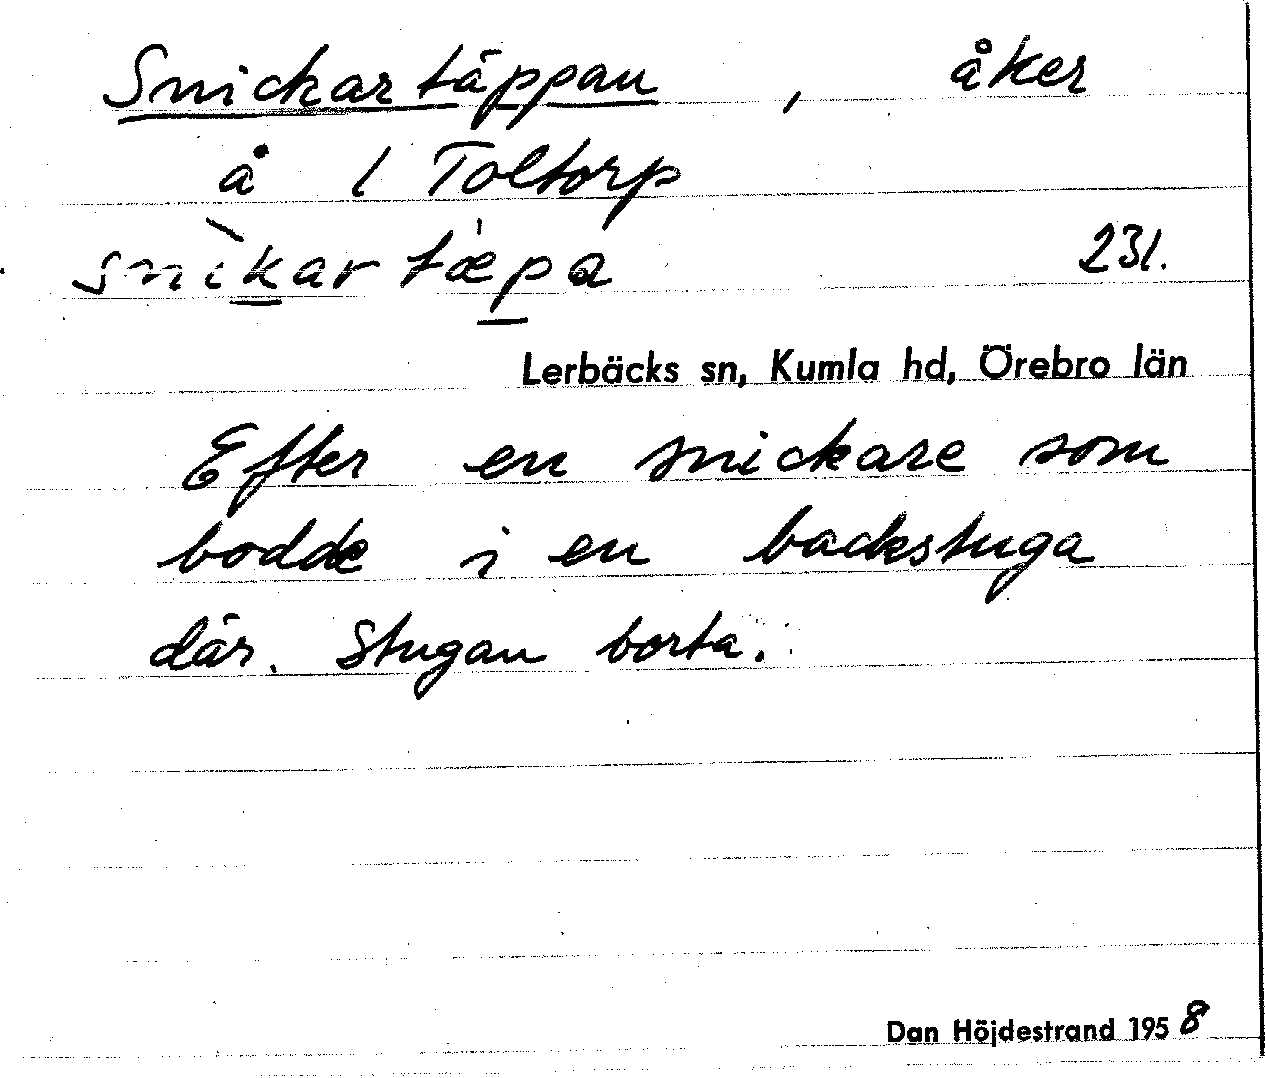 Snickartäppan , åker
å 1 Toltorp
snìkar tæ̍pa 231.
Lerbäcks sn, Kumla hd, Örebro län
Efter en snickare som
bodde i en backstuga
där. Stugan borta.
Dan Höjdestrand 1958